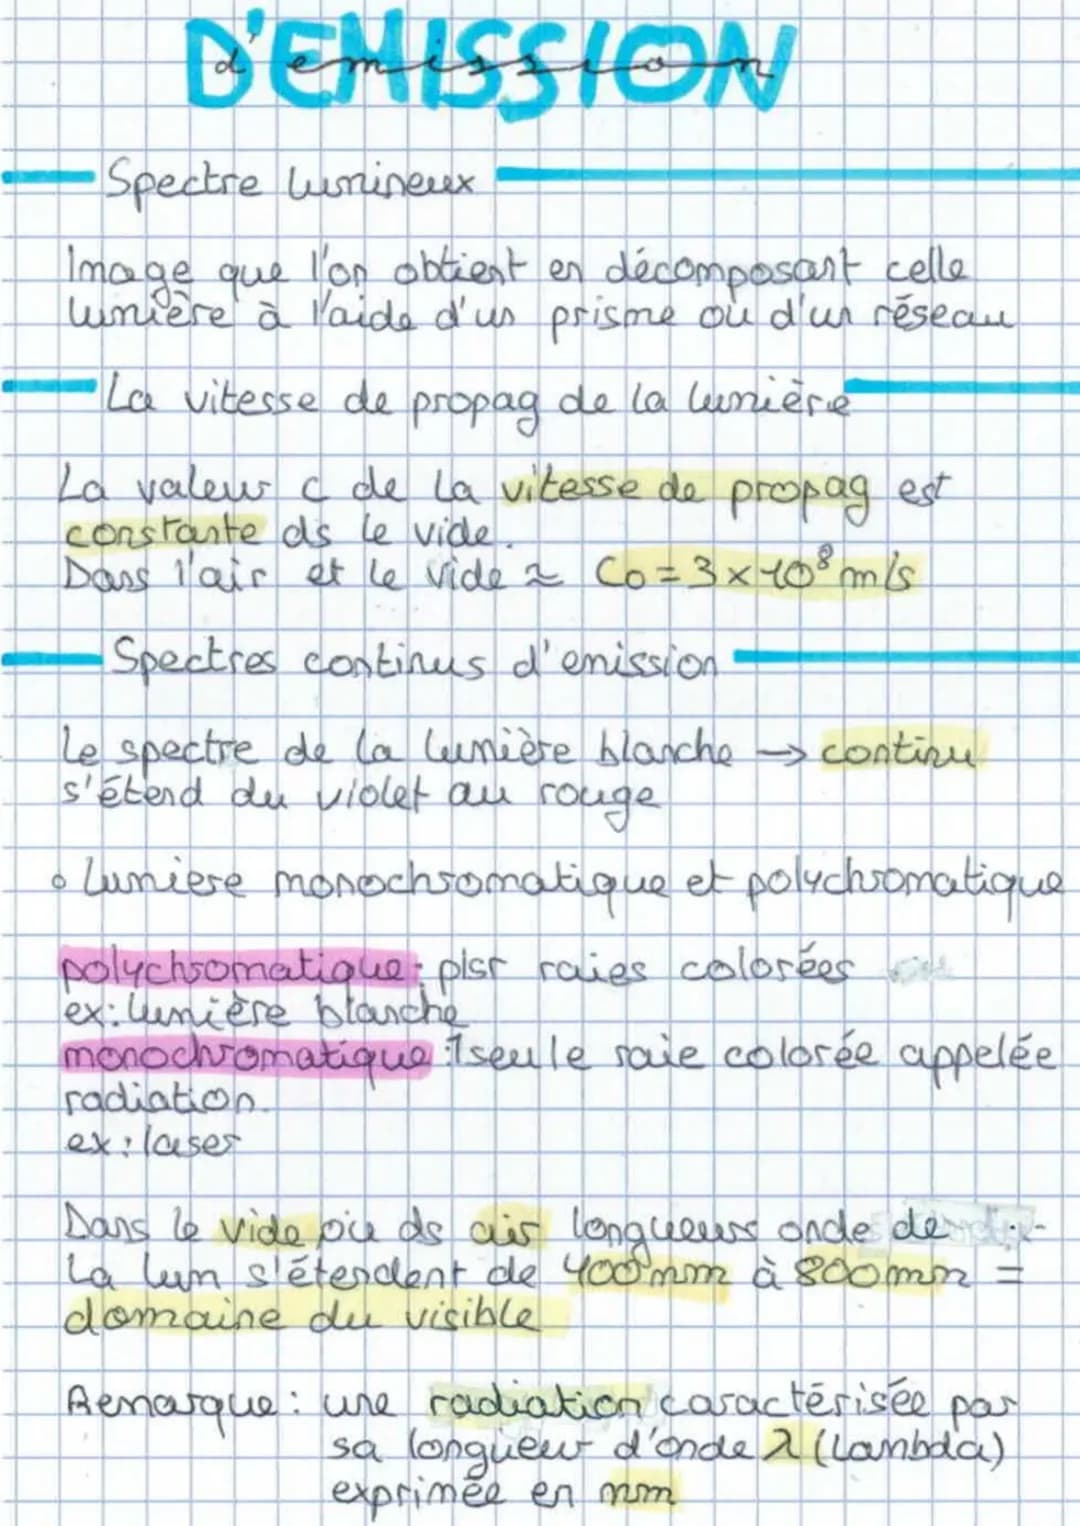 D'EMISSION
d'emission
Spectre lumineux
Image que l'on obtient en décomposant celle
lumière à l'aide d'un prisme ou d'un réseau
La vitesse de propag de la lumière
La valeur c de la vitesse de propag est
constante ds le vide.
Dans l'air et le vide ≈ Co = 3 × 10⁸ m/s
Spectres continus d'emission
Le spectre de la lumière blanche → continu
s'étend du violet au rouge
• Lumiere monochromatique et polychromatique
polychromatique : plsr raies colorées
ex: lumière blanche
monochromatique : 1 seule raie colorée appelée
radiation.
ex : laser
Dans le vide ou ds air longueurs onde de
La lum s'étendent de 400 mm à 800 mm =
domaine du visible
Remarque : une radiation caractérisée par
sa longueur d'onde λ (Lambda)
exprimée en nm